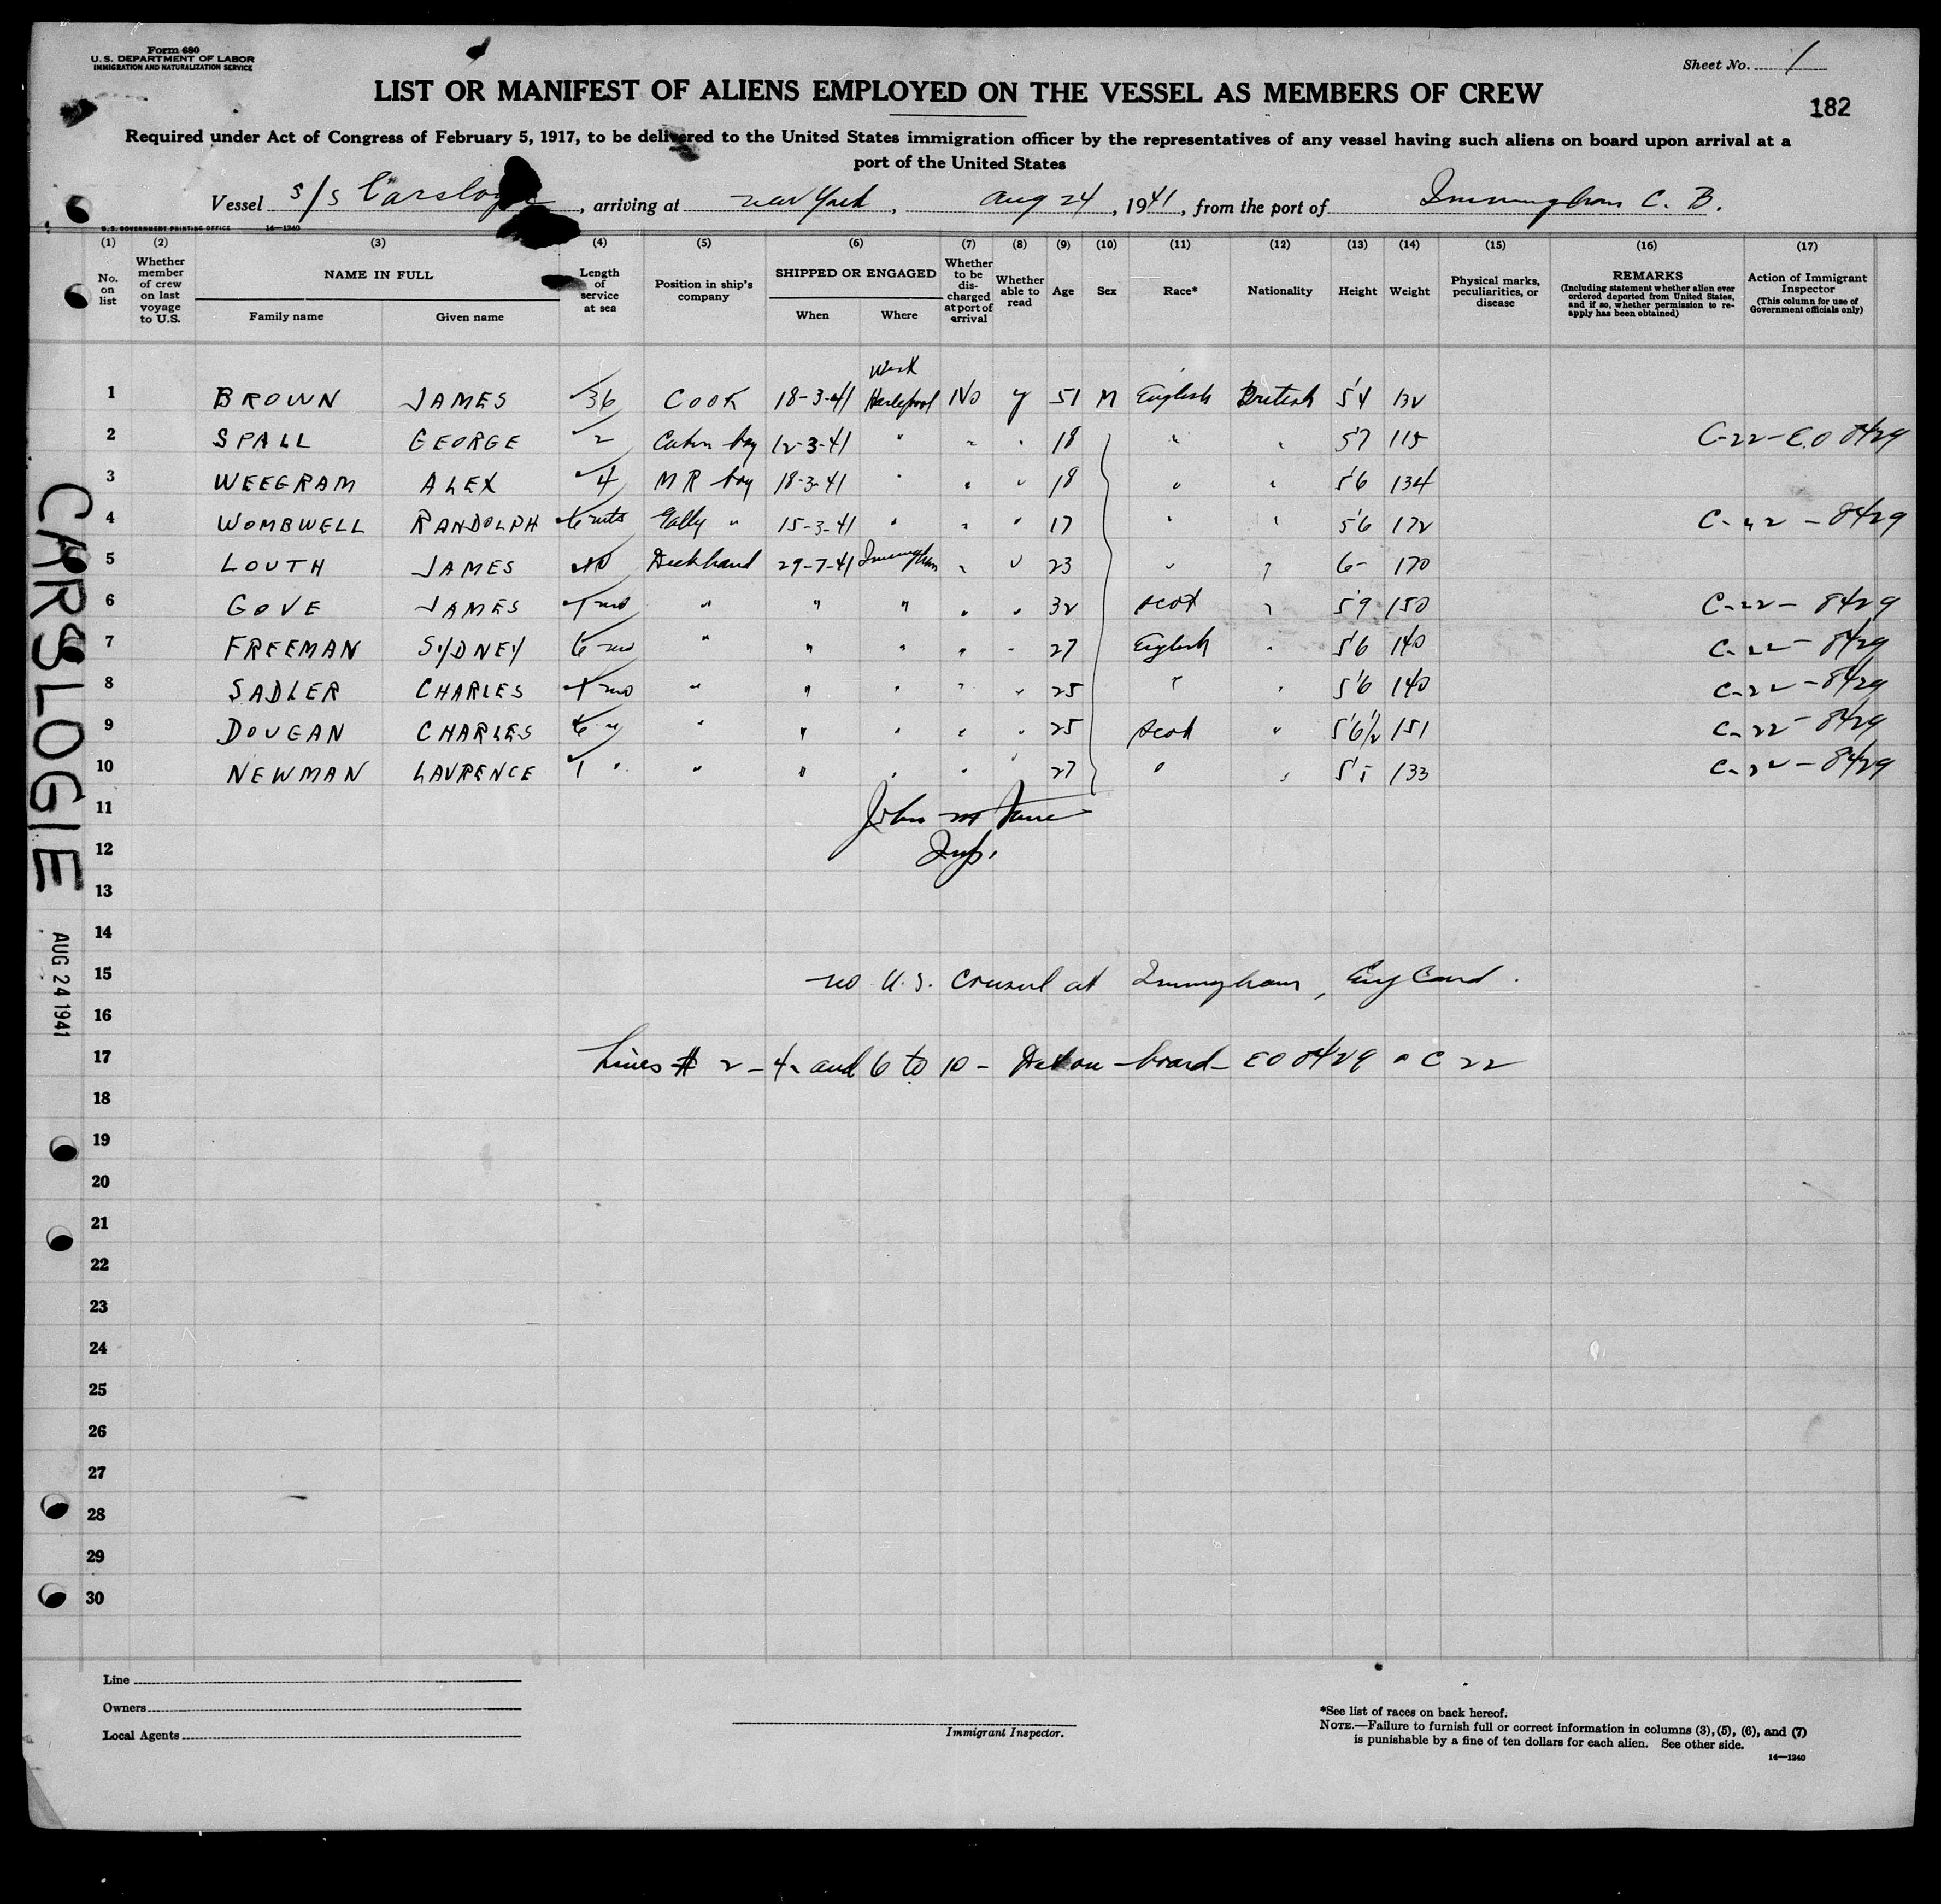 Form 680
U. S. DEPARTMENT OF LABOR
IMMIGRATION AND NATURALIZATION SERVICE
Sheet No. 1
LIST OR MANIFEST OF ALIENS EMPLOYED ON THE VESSEL AS MEMBERS OF CREW
182
Required under Act of Congress of February 5, 1917, to be delivered to the United States immigration officer by the representatives of any vessel having such aliens on board upon arrival at a
port of the United States
Vessel S/S Carslogie, arriving at New York, Aug 24, 1941, from the port of Immingham G. B.
U. S. GOVERNMENT PRINTING OFFICE 14—1240
(1) (2) (3) (4) (5) (6) (7) (8) (9) (10) (11) (12) (13) (14) (15) (16) (17)
No. on list
Whether member of crew on last voyage to U.S.
NAME IN FULL
Family name
Given name
Length of service at sea
Position in ship's company
SHIPPED OR ENGAGED
When
Where
Whether to be discharged at port of arrival
Whether able to read
Age
Sex
Race*
Nationality
Height
Weight
Physical marks, peculiarities, or disease
REMARKS
(Including statement whether alien ever ordered deported from United States, and if so, whether permission to re-apply has been obtained)
Action of Immigrant Inspector
(This column for use of Government officials only)
West
1 BROWN JAMES 36 COOK 18-3-41 Hartlepool No y 51 M English British 5'4 132
2 SPALL GEORGE 2 Cabin boy 12-3-41 " " " 18 " " 5'7 115 C-22-E.O 8429
3 WEEGRAM ALEX 4 M R boy 18-3-41 " " " 18 " " 5'6 134
4 WOMBWELL RANDOLPH 6 mts Gally " 15-3-41 " " " 17 " " 5'6 172 C-22-8429
5 LOUTH JAMES 10 Deckhand 29-7-41 Immingham " " 23 " " 6- 170
6 GOVE JAMES 1 mo " " " " " 32 Scot " 5'9 150 C-22-8429
7 FREEMAN SYDNEY 6 mo " " " " " 27 English " 5'6 140 C-22-8429
8 SADLER CHARLES 1 mo " " " " " 25 " " 5'6 140 C-22-8429
9 DOUGAN CHARLES 6 " " " " " " 25 Scot " 5'6½ 151 C-22-8429
10 NEWMAN LAURENCE 1 " " " " " " 27 " " 5'5 133 C-22-8429
11 John
12 Insp.
13
14
15 no U.S. Consul at Immingham, England.
16
17 Lines # 2-4 and 6 to 10 - board - EO 8429 C 22
18
19
20
21
22
23
24
25
26
27
28
29
30
CARSLOGIE
AUG 24 1941
Line
Owners
Local Agents
Immigrant Inspector.
*See list of races on back hereof.
NOTE.—Failure to furnish full or correct information in columns (3), (5), (6), and (7)
is punishable by a fine of ten dollars for each alien. See other side.
14—1240